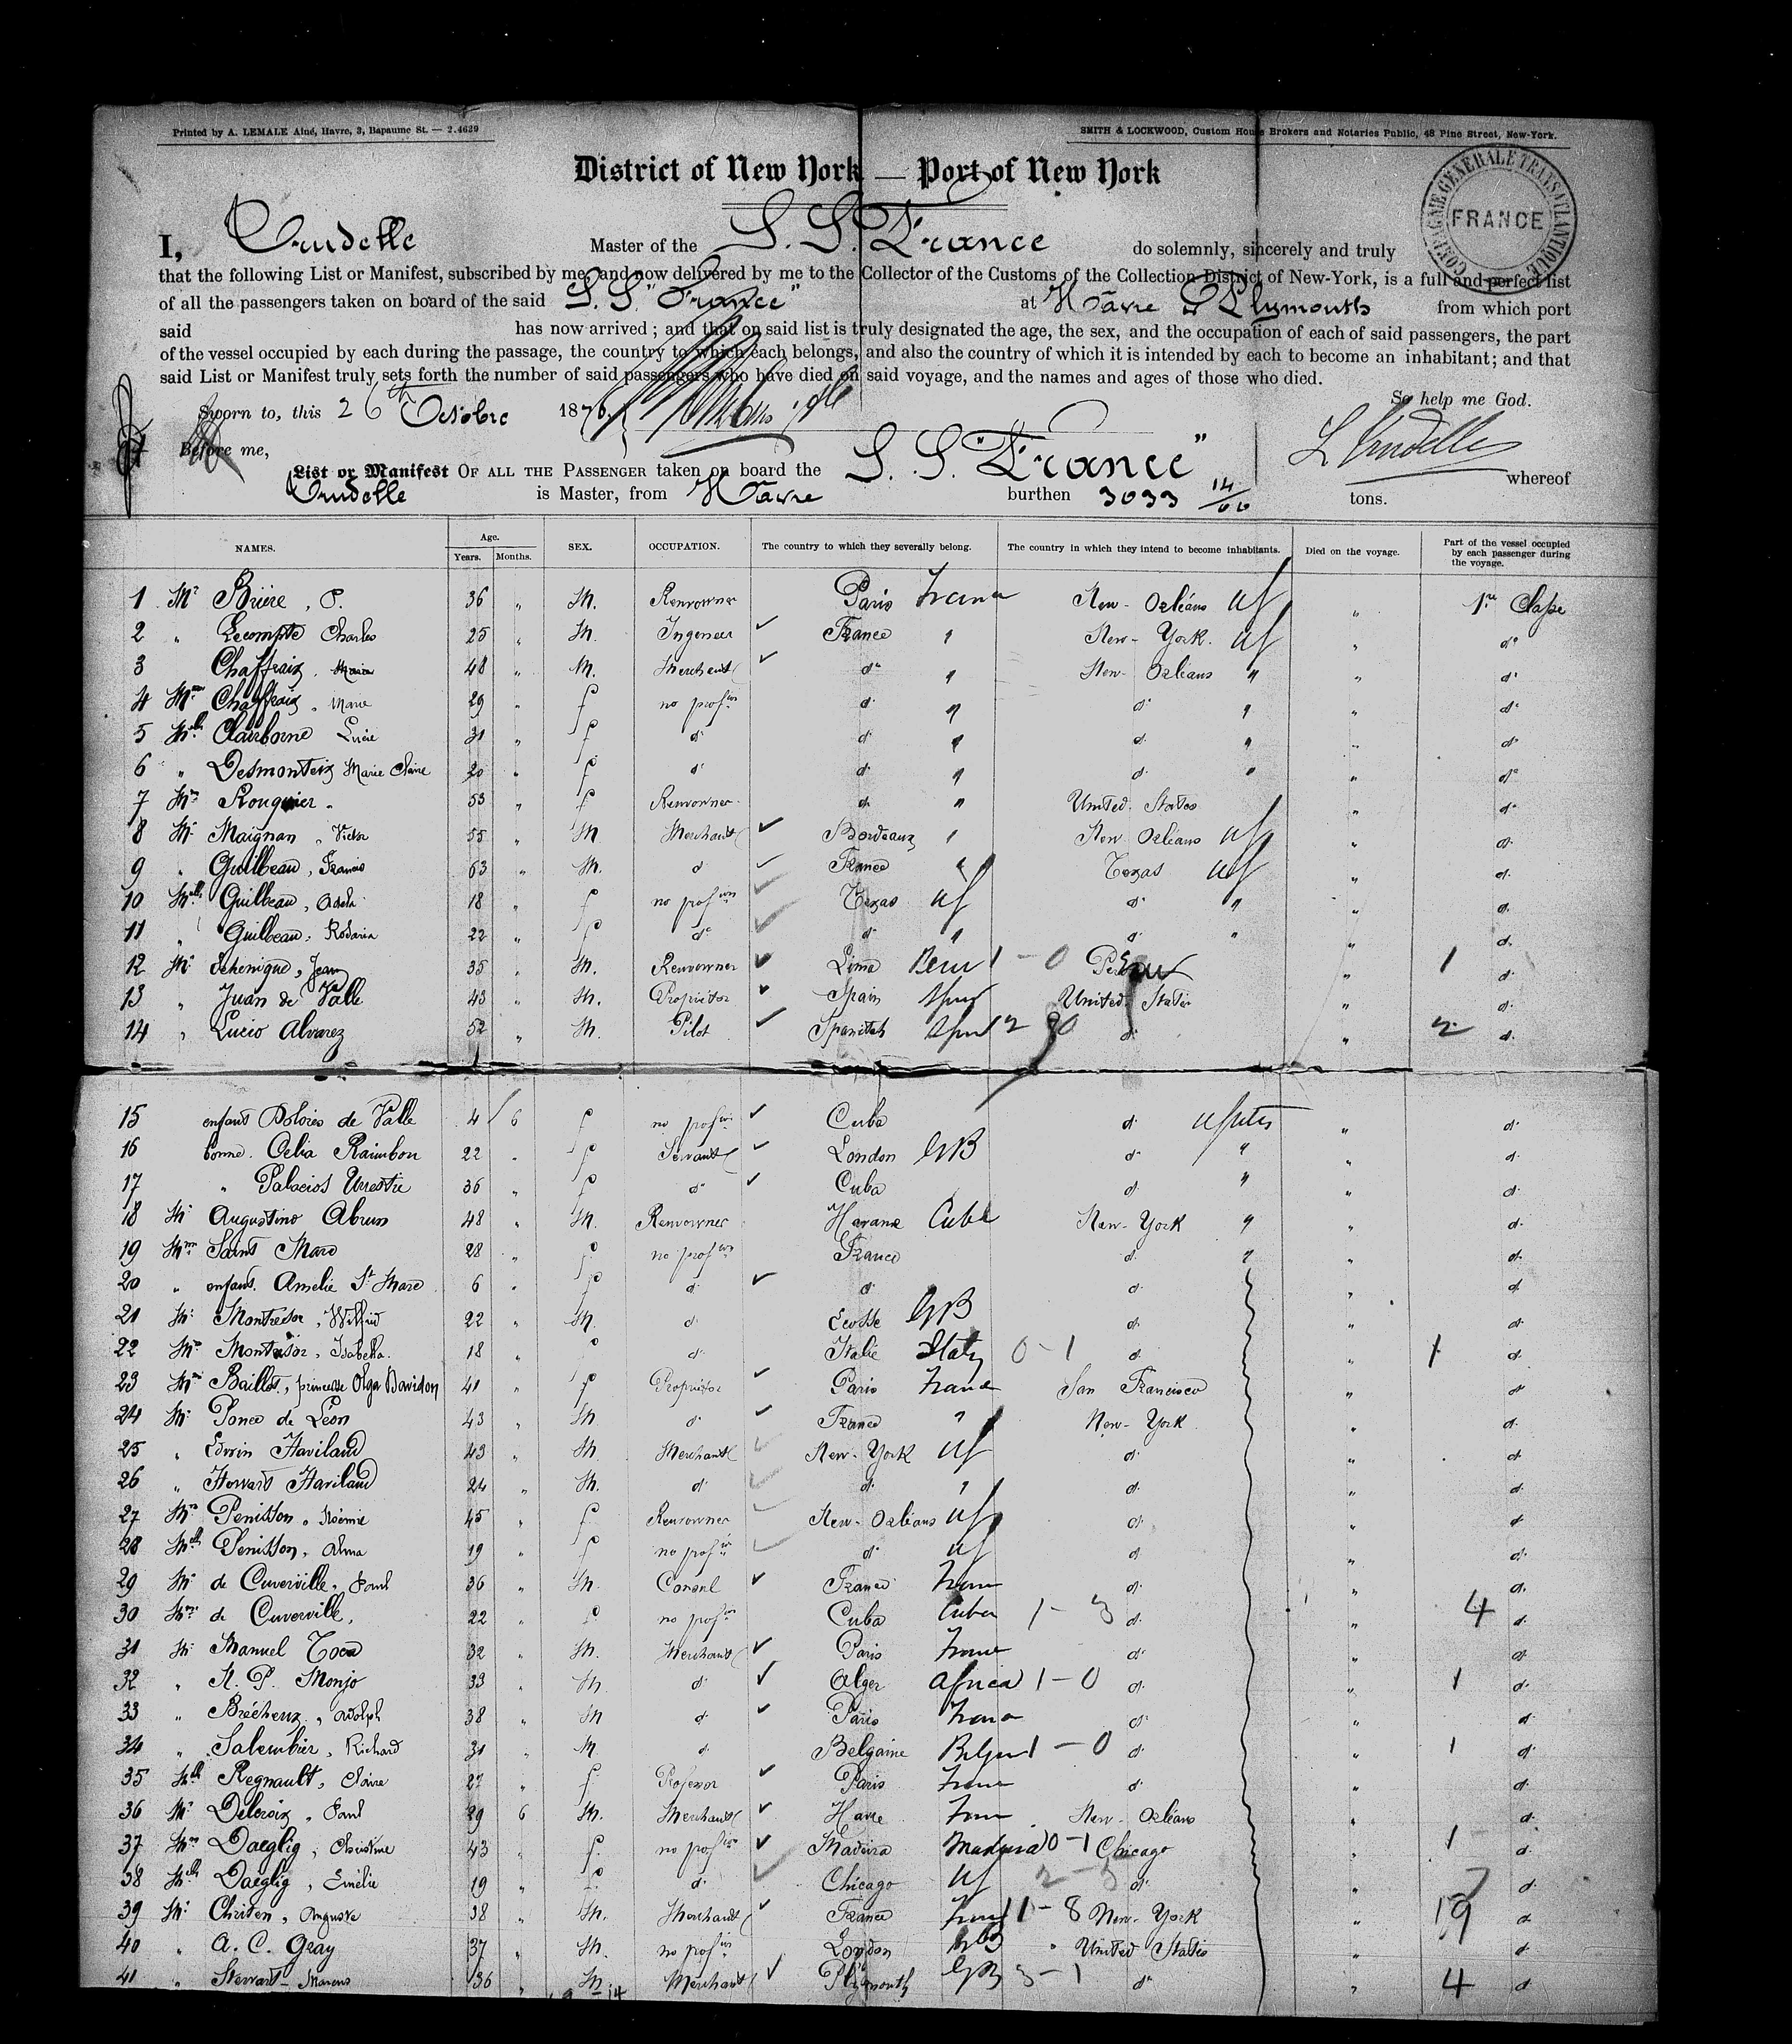 Printed by A. LEMALE Aîné, Havre, 3, Bapaume St. — 2.4629
SMITH & LOCKWOOD, Custom House Brokers and Notaries Public, 48 Pine Street, New-York.
District of New York — Port of New York
COMPAGNIE GENERALE TRANSATLANTIQUE FRANCE
I, Trudelle Master of the S. S. France do solemnly, sincerely and truly
that the following List or Manifest, subscribed by me, and now delivered by me to the Collector of the Customs of the Collection District of New-York, is a full and perfect list
of all the passengers taken on board of the said S. S. "France" at Havre & Plymouth from which port
said has now arrived ; and that on said list is truly designated the age, the sex, and the occupation of each of said passengers, the part
of the vessel occupied by each during the passage, the country to which each belongs, and also the country of which it is intended by each to become an inhabitant; and that
said List or Manifest truly sets forth the number of said passengers who have died on said voyage, and the names and ages of those who died.
So help me God.
Sworn to, this 26th Octobre 1876
L Trudelle
Before me,
List or Manifest OF ALL THE PASSENGER taken on board the S. S. "France" whereof
Trudelle is Master, from Havre burthen 3033 14/66 tons.
NAMES. Age. Years. Months. SEX. OCCUPATION. The country to which they severally belong. The country in which they intend to become inhabitants. Died on the voyage. Part of the vessel occupied by each passenger during the voyage.
1 Mr Brière, P. 36 " M. Renvowner Paris France New-Orléans US " 1re Classe
2 " Lecompte Charles 25 " M. Ingeneer France " New-York. US " do
3 Chaffraix. 48 " M. Merchant do " New-Orléans " " do
4 Mme Chaffraix, Marie 29 " f no profion do " do " " do
5 Mlle Clairborne Lucie 31 " f do do " do " " do
6 " Desmonteix Marie Claire 20 " f do do " do " " do
7 Mme Rouquier " 53 " f Renvowner do " United States " do
8 Mr Maignan, Victor 55 " M Merchant Bordeaux " New Orléans US " do
9 " Guilbeau, Francis 63 " M. do France " Texas US " do
10 Mlle Guilbeau, Adela 18 " f no profion Texas US do " " do
11 " Guilbeau, Rosaria 22 " f do do " do " " do
12 Mr Schenique, Jean 35 " M. Renvowner Lima Peru 1-0 Peru " 1 do
13 " Juan de Valle 43 " M. Proprietor Spain Spain United States " do
14 " Lucio Alvarez 52 " M. Pilot Spanish Spain 2 0 do " 2 do
15 enfant Dolores de Valle 4 6 f no profion Cuba do US " do
16 bonne. Celia Raimbon 22 " f Servant London GB do " " do
17 " Palacios Urrestie 36 " f do Cuba do " " do
18 Mr Augustino Abrun 48 " M. Renvowner Havane Cuba New-York " " do
19 Mme Saint Marc 28 " f no profion France do " " do
20 " enfant. Amelie St Marc 6 " f do do do " do
21 Mr Montresor, Wilfrid 22 " M. do Ecosse GB do " do
22 Mme Montresor, Isabella. 18 " f do Italie Italy 0-1 do " 1 do
23 Mme Baillot, princesse Olga Davidon 41 " f Proprietor Paris France San Francisco " do
24 Mr Ponce de Leon 43 " M do France " New-York " do
25 " Edwin Haviland 43 " M Merchant New-York US do " do
26 " Howard Haviland 24 " M. do do " do " do
27 Mme Penisson, Noémie 45 " f Renvowner New-Orléans US do " do
28 Mlle Penisson, Alma 19 " f no profion do US do " do
29 Mr de Cuverville, Paul 36 " M. Consul France France do " do
30 Mme de Cuverville, 22 " f no profion Cuba Cuba 1-3 do " 4 do
31 Mr Manuel Coca 32 " M. Merchant Paris France do " do
32 " N. P. Monjo 33 " M. do Alger Africa 1-0 do " 1 do
33 " Brécheux, Adolph 38 " M do Paris France do " do
34 " Salembier, Richard 31 " M do Belgaine Belgium 1-0 do " 1 do
35 Mlle Regnault, Claire 27 " f Professor Paris France do " do
36 Mr Delcroix, Paul 29 6 M. Merchant Havre France New-Orléans " do
37 Mme Daeglig, Christine 43 " f. no profion Madeira Madeira 0-1 Chicago " 1 do
38 Mlle Daeglig, Emélie 19 " f do Chicago US 2-5 do " 7 do
39 Mr Christen, Auguste 38 " M. Merchant France France 11-8 New-York " 19 do
40 " A. C. Gray 37 " M. no profion London GB " United States " do
41 " Stewart-Marcus 36 " M Merchant Plymouth GB 3-1 do " 4 do